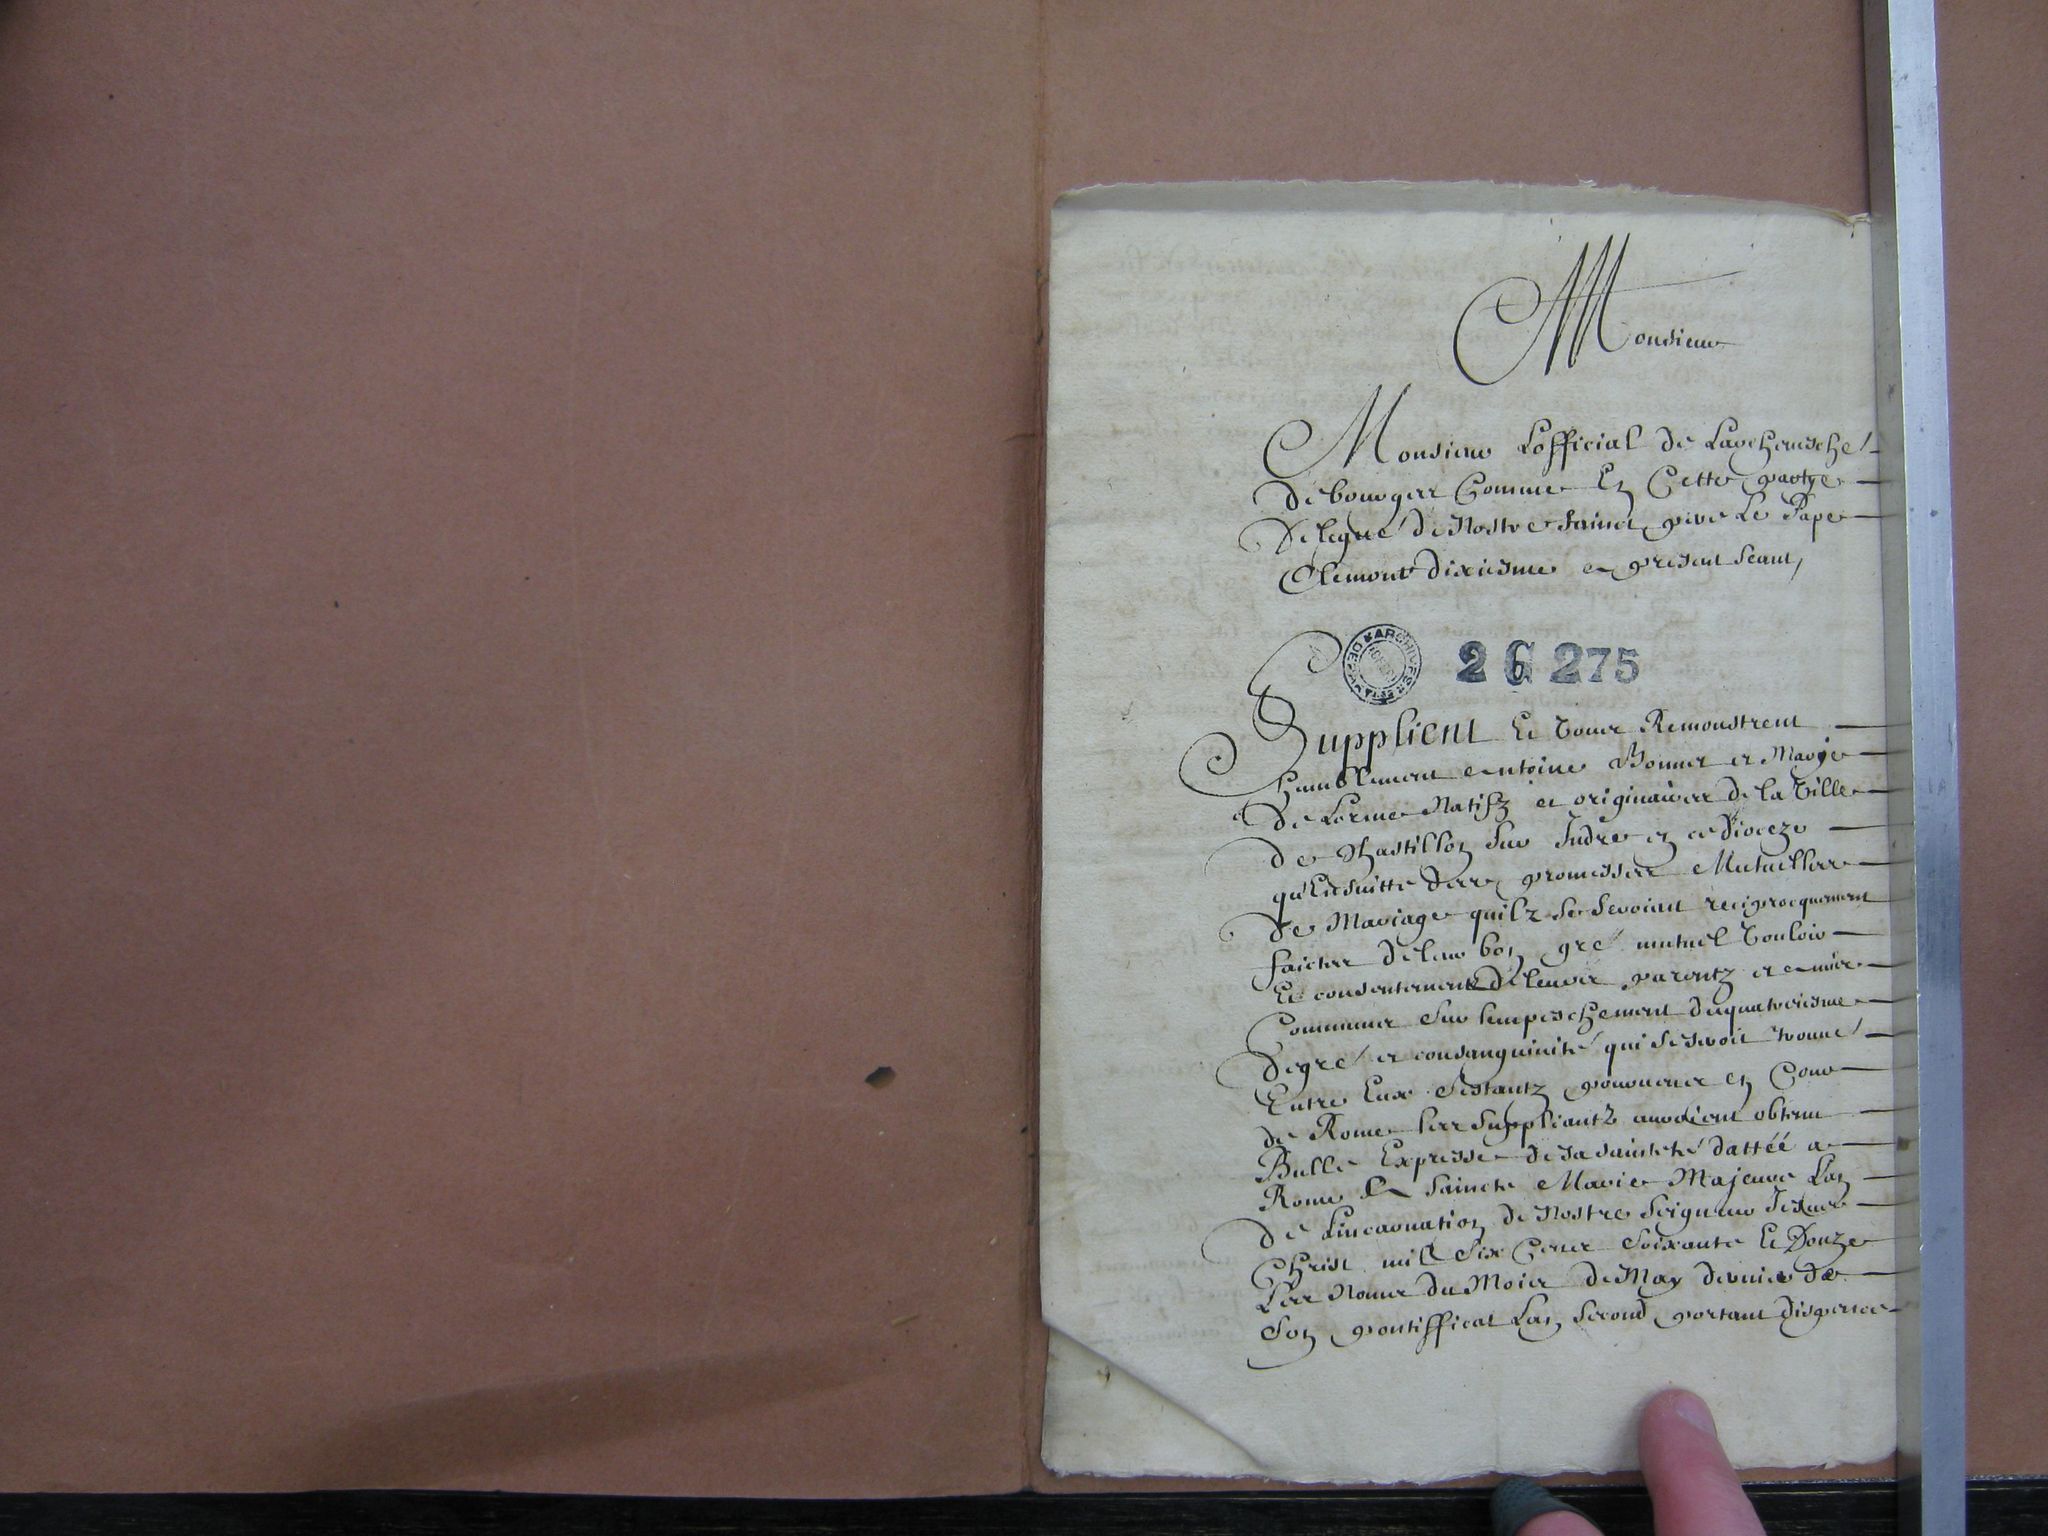 Monsieur
Monsieur Lofficial de Larchevesche
de bourges Comme En Cette partye
Delegué de Nostre Sainct pere Le Pape
Clement dixiesme a present Seant,
ARCHIVES DEPARTA
2 G 275
Supplient Et Vous Remonstrent
humblement Antoine Bonnet et Marye
De Lorme Natifz et originaires de la Ville
de Chastillon Sur Indre en ce Dioceze
qu'Ensuitte des promesses Mutuelles
De Mariage quilz se seroient reciprocquement
faictes de leur bon gré mutuel Vouloir
Et consentement de leurs parentz et amis
Communs Sur lempeschement du quatriesme
degré et consanguinité qui se seroit trouué
Entre Eux Sestantz pourueus en Cour
de Rome les Suppliantz auroient obtenu
Bulle Expresse de sa sainteté dattéé a
Rome A Saincte Marie Majeure Lan
de Lincarnation de Nostre Seigneur Jesus
Christ mil Six Cens Soixante Et Douze
Les Nones du Mois de May dernier de
Son pontifficat Lan Second portant dispence